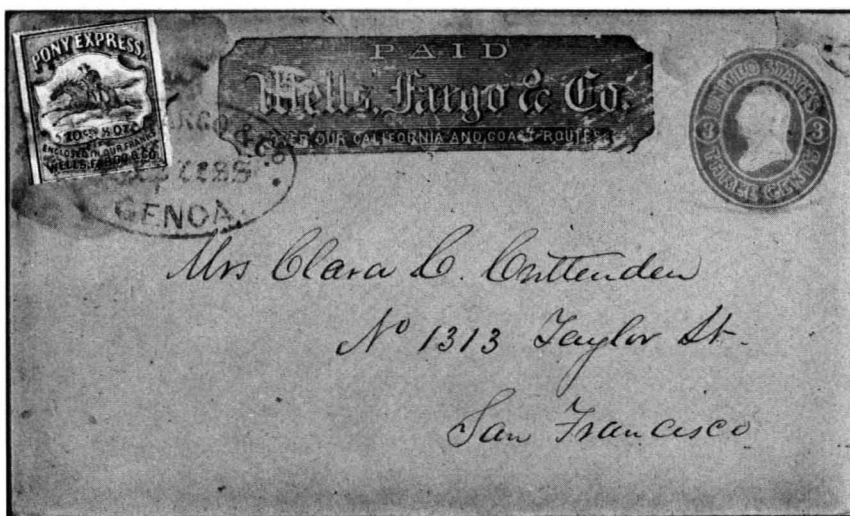 PONY EXPRESS
ENCLOSED IN OUR FRANKS
WELLS, FARGO & CO.
ARGO & Co
GENOA.
PAID
Wells, Fargo & Co.
OVER OUR CALIFORNIA AND COAST ROUTES
UNITED STATES
3 3
THREE CENTS
Mrs Clara C. Crittenden
No 1313 Taylor St.
San Francisco